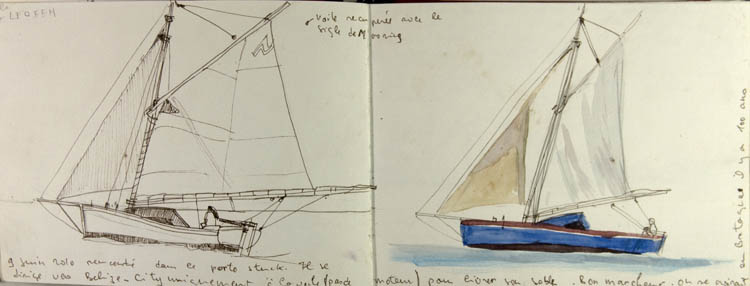 voile récupérée avec le
sigle de Mooring
9 juin 2010 rencontré dans le porto stuck. Il se
dirige vers Belize-City uniquement à la voile (pas de moteur) pour livrer son sable. Bon marcheur, on se croirait
en Bretagne il y a 100 ans